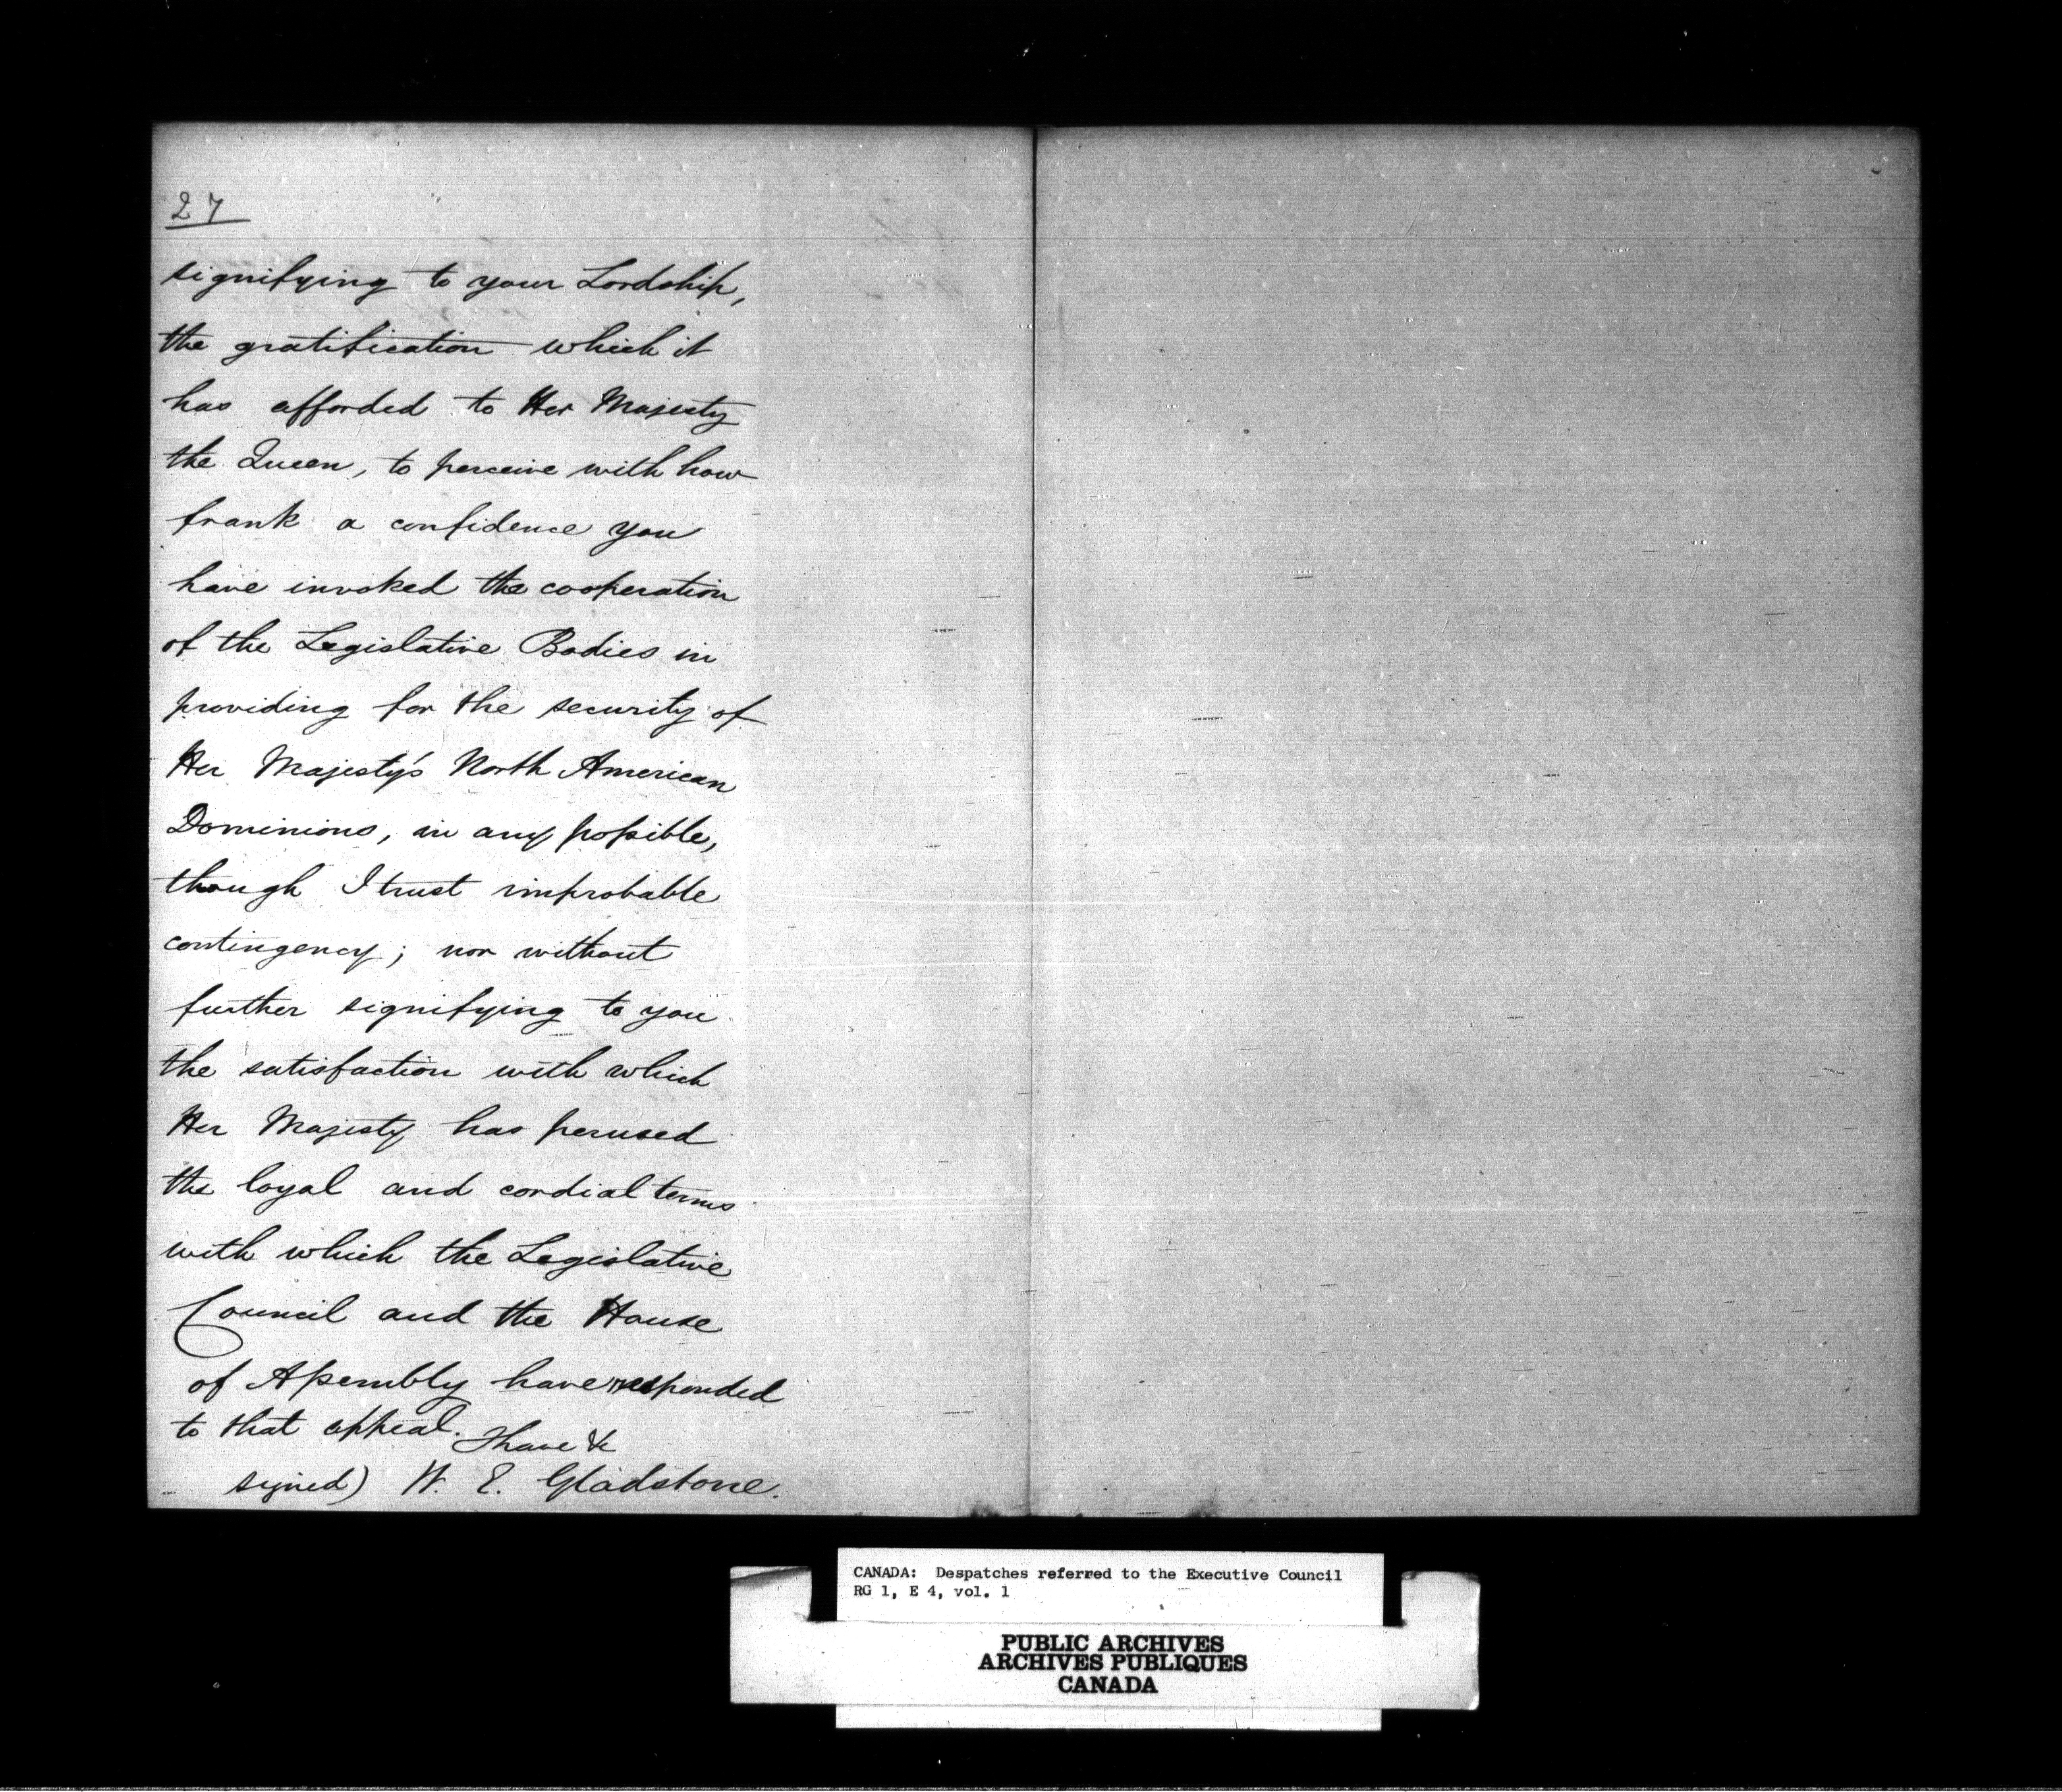 27
signifying to your Lordship,
the gratification which it
has afforded to Her Majesty
the Queen, to perceive with how
frank a confidence you
have invoked the cooperation
of the Legislative Bodies in
providing for the security of
Her Majesty's North American
Dominions, in any possible,
though I trust improbable
contingency; nor without
further signifying to you
the satisfaction with which
Her Majesty has perused
the loyal and cordial terms
with which the Legislative
Council and the House
of Assembly have responded
to that appeal. I have &c
signed) W. E. Gladstone.
CANADA: Despatches referred to the Executive Council
RG 1, E 4, vol. 1
PUBLIC ARCHIVES
ARCHIVES PUBLIQUES
CANADA